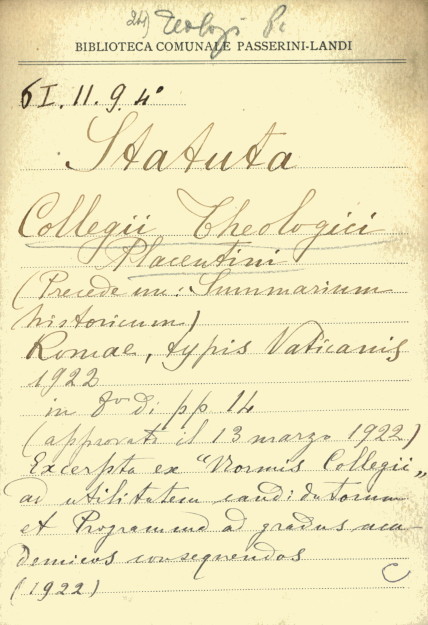 Teologi Pi
BIBLIOTECA COMUNALE PASSERINI-LANDI
6I.11.9.4°
Statuta
Collegii Theologici
Placentini
(Precede un: Summarium
historicum)
Romae, typis Vaticanis
1922
in 8vo di pp 14
(approvati il 13 marzo 1922)
Excerpta ex "Normis Collegii"
ad utilitatem candidatorum
et Programma ad gradus aca-
demicos consequendos
(1922)
C